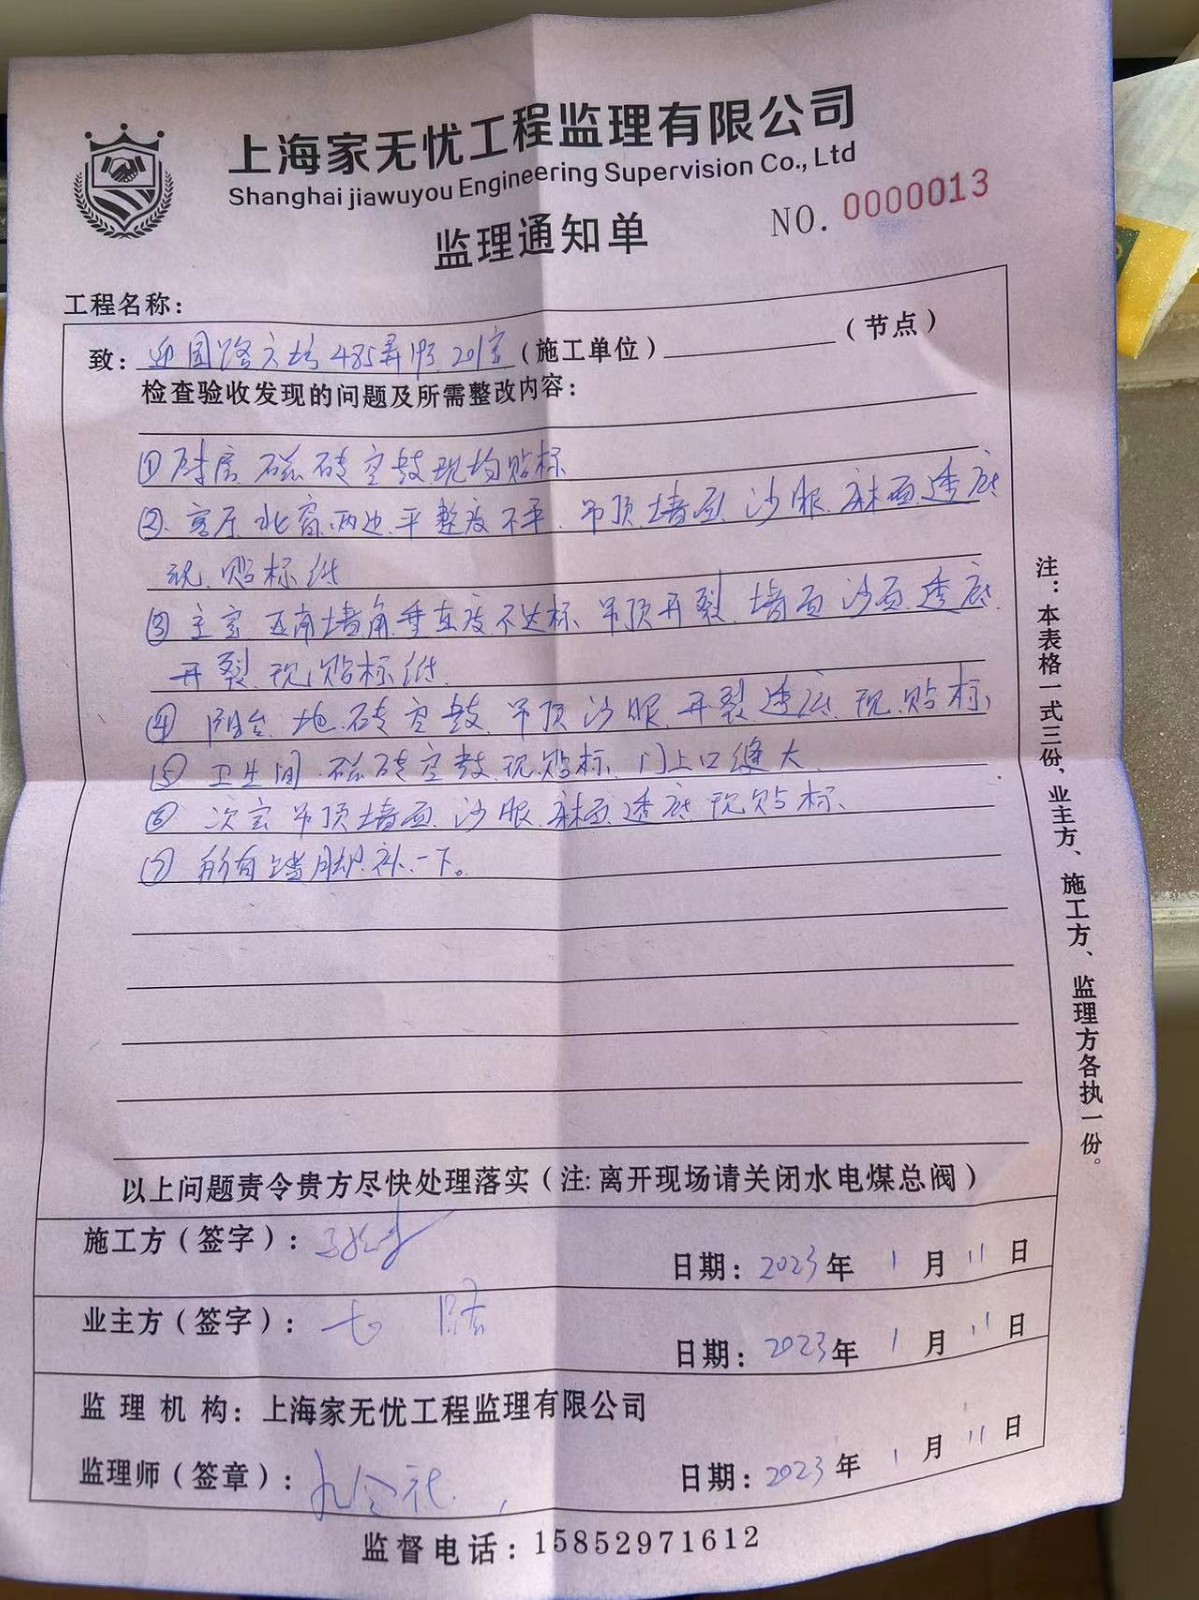 上海家无忧工程监理有限公司
Shanghai jiawuyou Engineering Supervision Co., Ltd
监理通知单
NO. 0000013
工程名称：
致：迎园路 485弄 201室（施工单位）（节点）
检查验收发现的问题及所需整改内容：
① 厨房 磁砖空鼓现均贴标
② 客厅北窗两边平整度不平、吊顶墙面 沙眼 麻面透底
现贴标纸
③ 主室 西南墙角垂直度不达标 吊顶开裂 墙面沙面透底
开裂 现贴标纸
④ 阳台 地砖空鼓 吊顶沙眼 开裂透底 现贴标、
⑤ 卫生间 磁砖空鼓现贴标 门上口缝大
⑥ 次室吊顶墙面 沙眼 麻面透底 现贴标、
⑦ 所有踢脚补一下。
以上问题责令贵方尽快处理落实（注：离开现场请关闭水电煤总阀）
施工方（签字）：
日期：2023年 1月 11日
业主方（签字）：
日期：2023年 1月 11日
监理机构：上海家无忧工程监理有限公司
监理师（签章）：
日期：2023年 1月 11日
监督电话：15852971612
注：本表格一式三份，业主方、施工方、监理方各执一份。